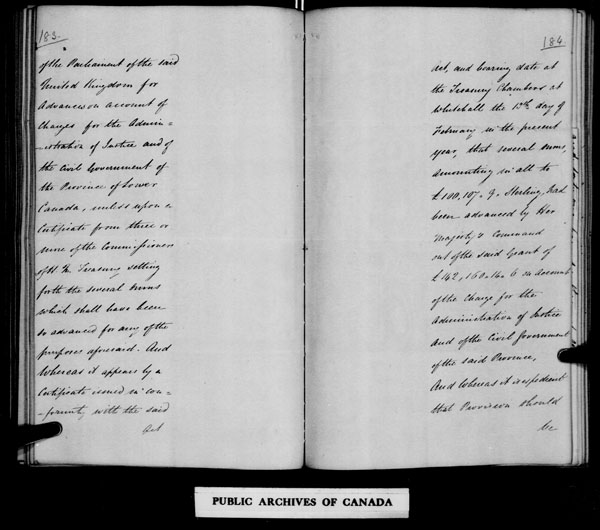 183.
of the Parliament of the said
United Kingdom for
Advances on account of
Charges for the Admin=
=istration of Justice and of
the Civil Government of
the Province of Lower
Canada, unless upon a
Certificate from three or
more of the Commissioners
of H. M. Treasury setting
forth the several sums
which shall have been
so advanced for any of the
purposes aforesaid. And
Whereas it appears by a
Certificate issued in con=
=formity with the said
Act
184.
Act, and bearing date at
the Treasury Chambers at
Whitehall the 13th day of
February in the present
year, that several sums,
amounting in all to
£100,107. 9. Sterling, had
been advanced by Her
Majesty's Command
out of the said Grant of
£142,160.14. 6 on account
of the Charge for the
Administration of Justice
and of the Civil Government
of the said Province,
And Whereas it is expedient
that Provision should
be
PUBLIC ARCHIVES OF CANADA